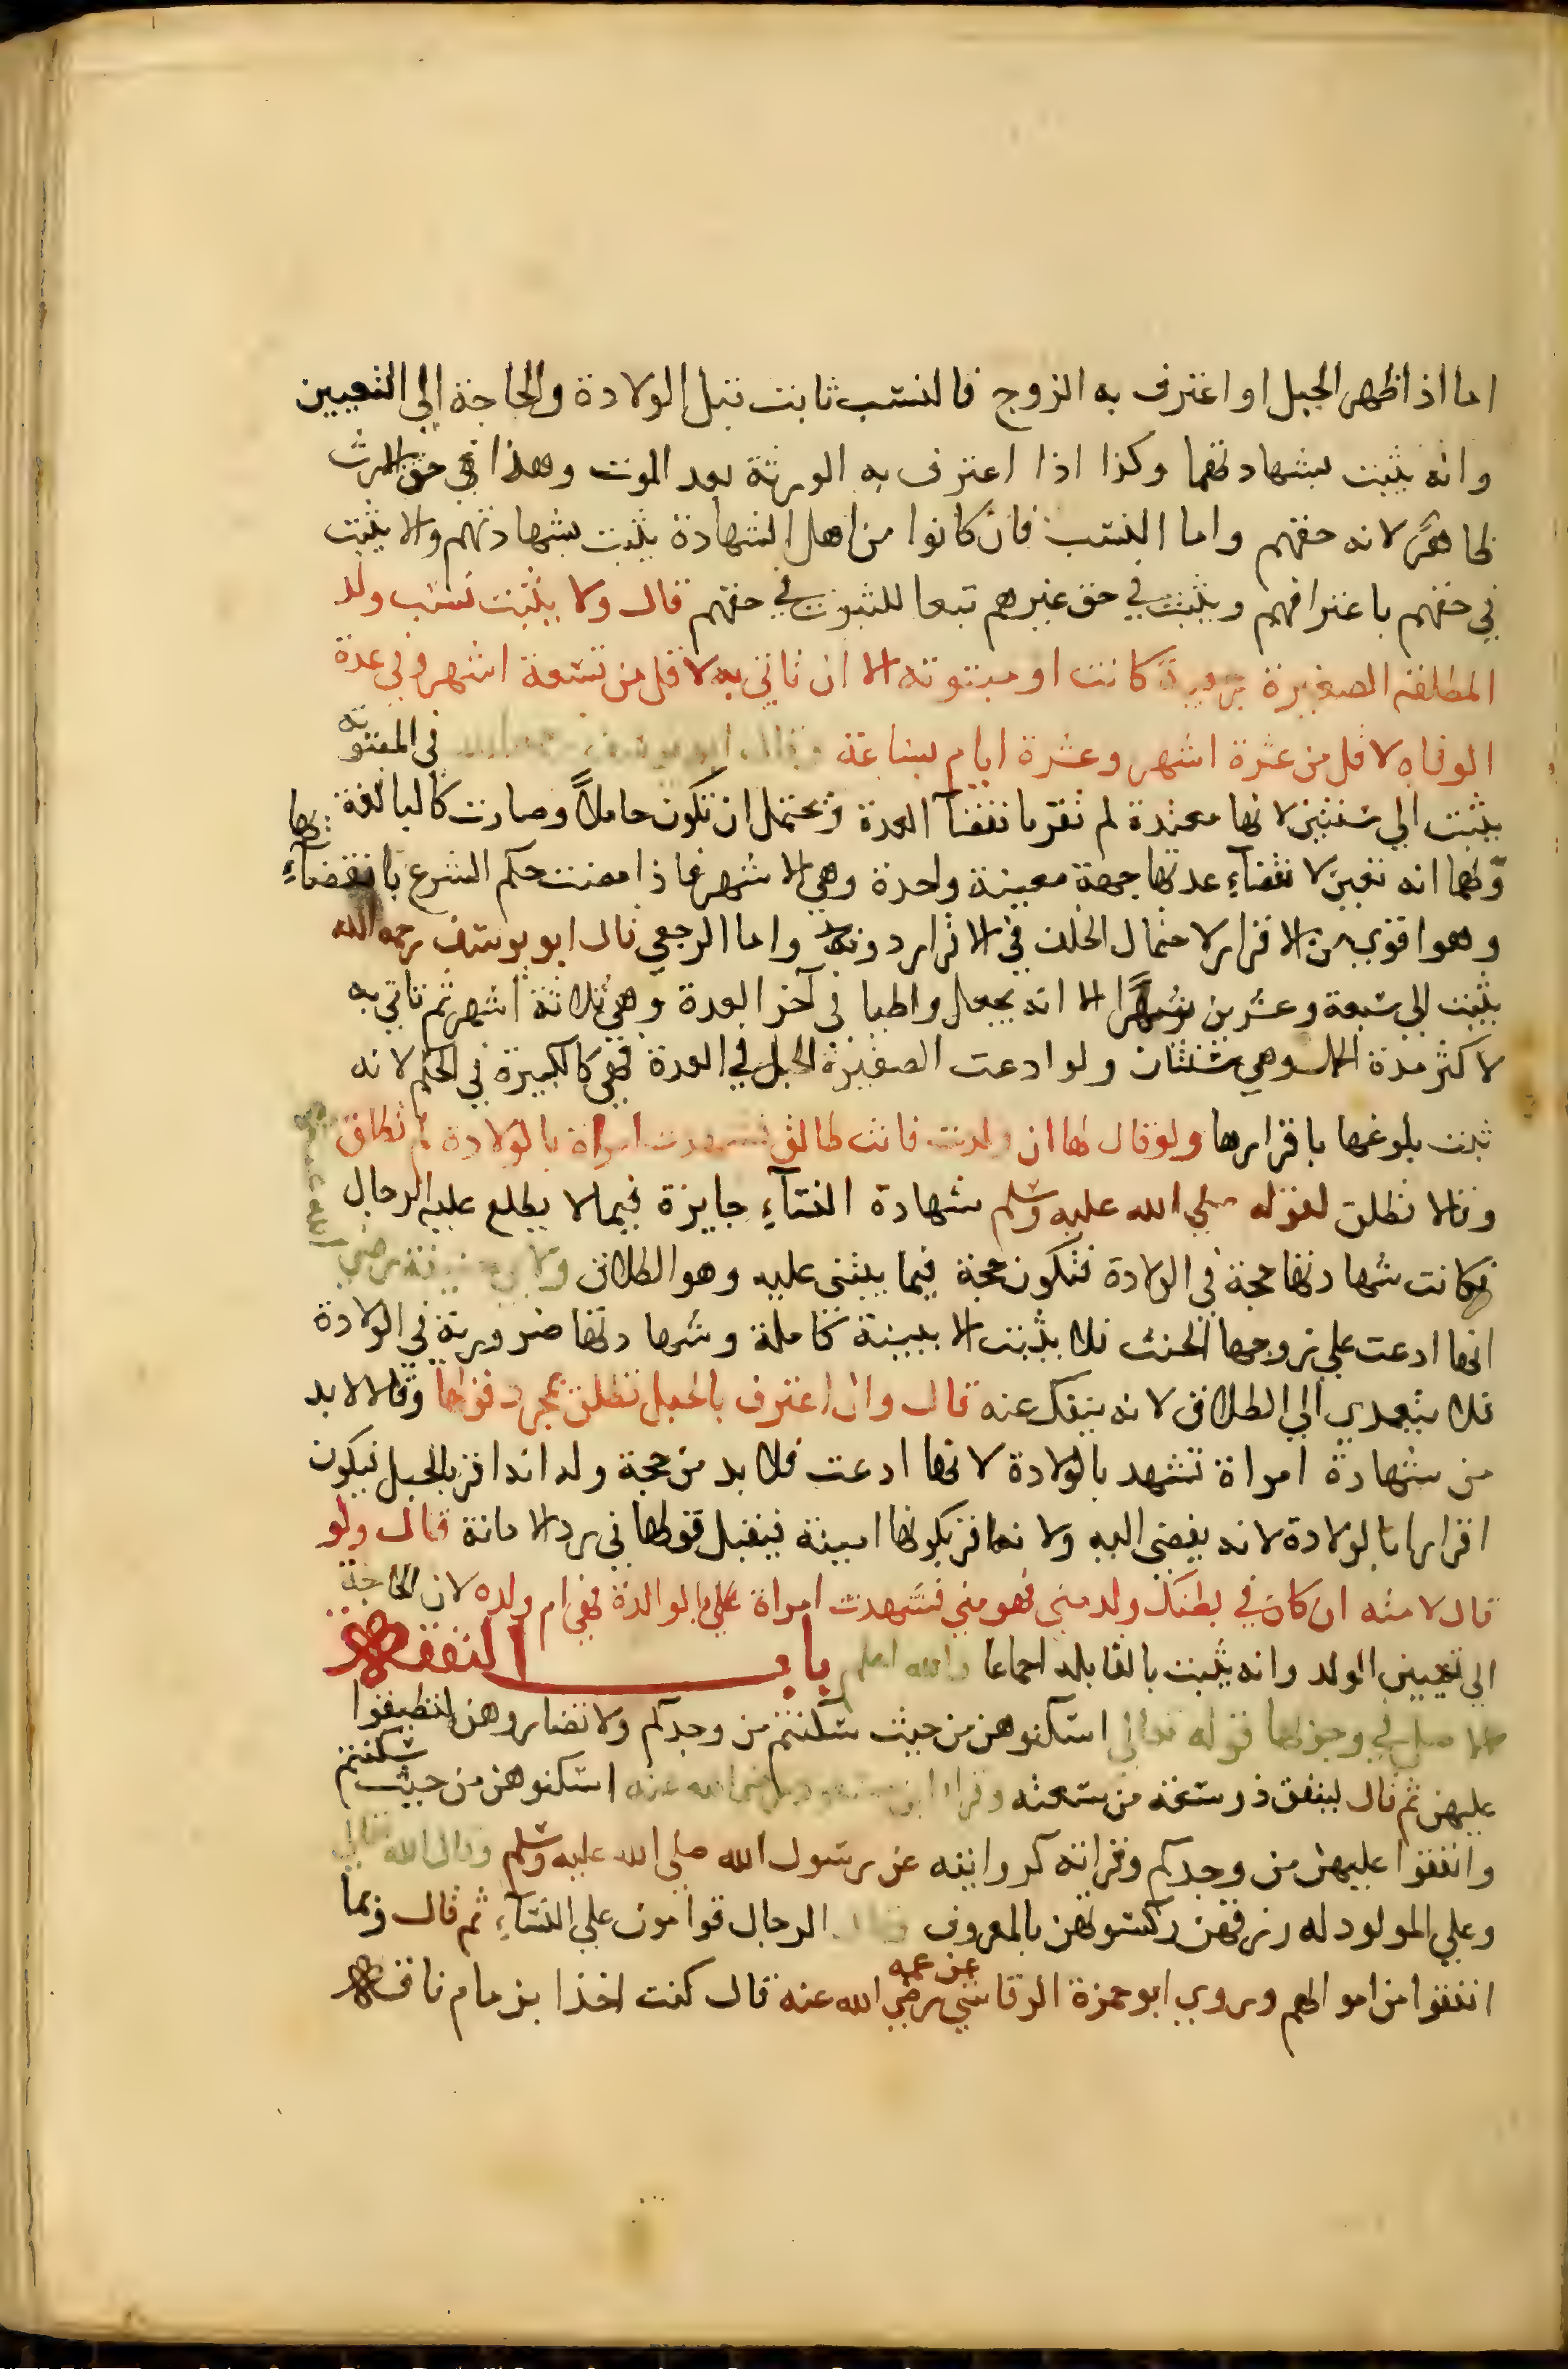 اما اذا ظهر الحبل او اعترف به الزوج فالنسب ثابت قبل الولادة والحاجة الى التعيين
وانه يثبت بشهادتها وكذا اذا اعترف به الورثة بعد الموت وهذا في حق الارث
ظاهر لانه حقهم واما النسب فان كانوا من اهل الشهادة يثبت بشهادتهم والا يثبت
في حقهم باعترافهم ويثبت في حق غيرهم تبعا للثبوت في حقهم قال ولا يثبت نسب ولد
المطلقة الصغيرة رجعية كانت او مبتوتة الا ان تاتي به لاقل من تسعة اشهر وفي عدة
الوفاه لاقل من عشرة اشهر وعشرة ايام بساعة وقال ابو يوسف في المبتوتة
يثبت الى سنتين لانها معتدة لم تقر بانقضآ العدة ويحتمل ان تكون حاملاً وصارت كالبالغة
ولهما انه تعين لانقضآءِ عدتها جهة معينة واحدة وهي الاشهر فاذا مضت حكم الشرع بانقضآءِ
وهو اقوى من الاقرار لاحتمال الخلف في الاقرار دونه واما الرجعي قال ابو يوسف رحمه الله
يثبت الى سبعة وعشرين شهرًا الا انه يجعل واطيا في آخر العدة وهي ثلاثة اشهر ثم تاتي به
لاكثر مدة الحمل وهي سنتان ولو ادعت الصغيرة الحبل في العدة فهي كالكبيرة في الحكم لانه
ثبت بلوغها باقرارها ولو قال لها ان ولدت فانت طالق فشهدت امراة بالولادة لم تطلق
وقالا تطلق لقوله صلى الله عليه وسلم شهادة النسآءِ جايزة فيما لا يطلع عليه الرجال
فكانت شهادتها حجة في الولادة فتكون حجة فيما يبتنى عليه وهو الطلاق ولابي حنيفة رضي
انها ادعت على زوجها الحنث فلا يثبت الا ببينة كاملة وشهادتها ضرورية في الولادة
فلا يتعدي الى الطلاق لانه ينفك عنه قال وان اعترف بالحبل تطلق بمجرد قولها وقالا لا بد
من شهادة امراة تشهد بالولادة لانها ادعت فلا بد من حجة وله انه اقر بالحبل فيكون
اقرارا بالولادة لانه يفضي اليه ولانه اقر بكونها امينة فيقبل قولها في رد الامانة قال ولو
قال لامته ان كان في بطنك ولد مني فهو مني فشهدت امراة على بالوالدة فهي ام ولده لان الحاجة
الى تعيين الولد وانه يثبت بالقابله اجماعا والله اعلم باب النفقه
الاصل في وجوبها قوله تعالى اسكنوهن من حيث سكنتم من وجدكم ولا تضاروهن لتضيقوا
عليهن ثم قال لينفق ذو سعة من سعته وقرا ابن مسعود رضي الله عنه اسكنوهن من حيث سكنتم
وانفقوا عليهن من وجدكم وقراته كروايته عن رسول الله صلى الله عليه وسلم وقال الله تعالى
وعلى المولود له رزقهن وكسوتهن بالمعروف وقال الرجال قوامون على النسآءِ ثم قال وبما
انفقوا من اموالهم وروي ابو حمزة الرقاشي عن عمه رضي الله عنه قال كنت اخذا بزمام ناقه